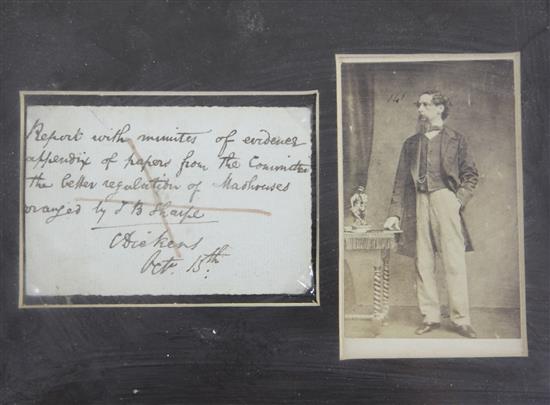 Report with minutes of evidence
appendix of papers from the Committee
the better regulation of Madhouses
arranged by J B Sharpe
CDickens
Octr 15th
141